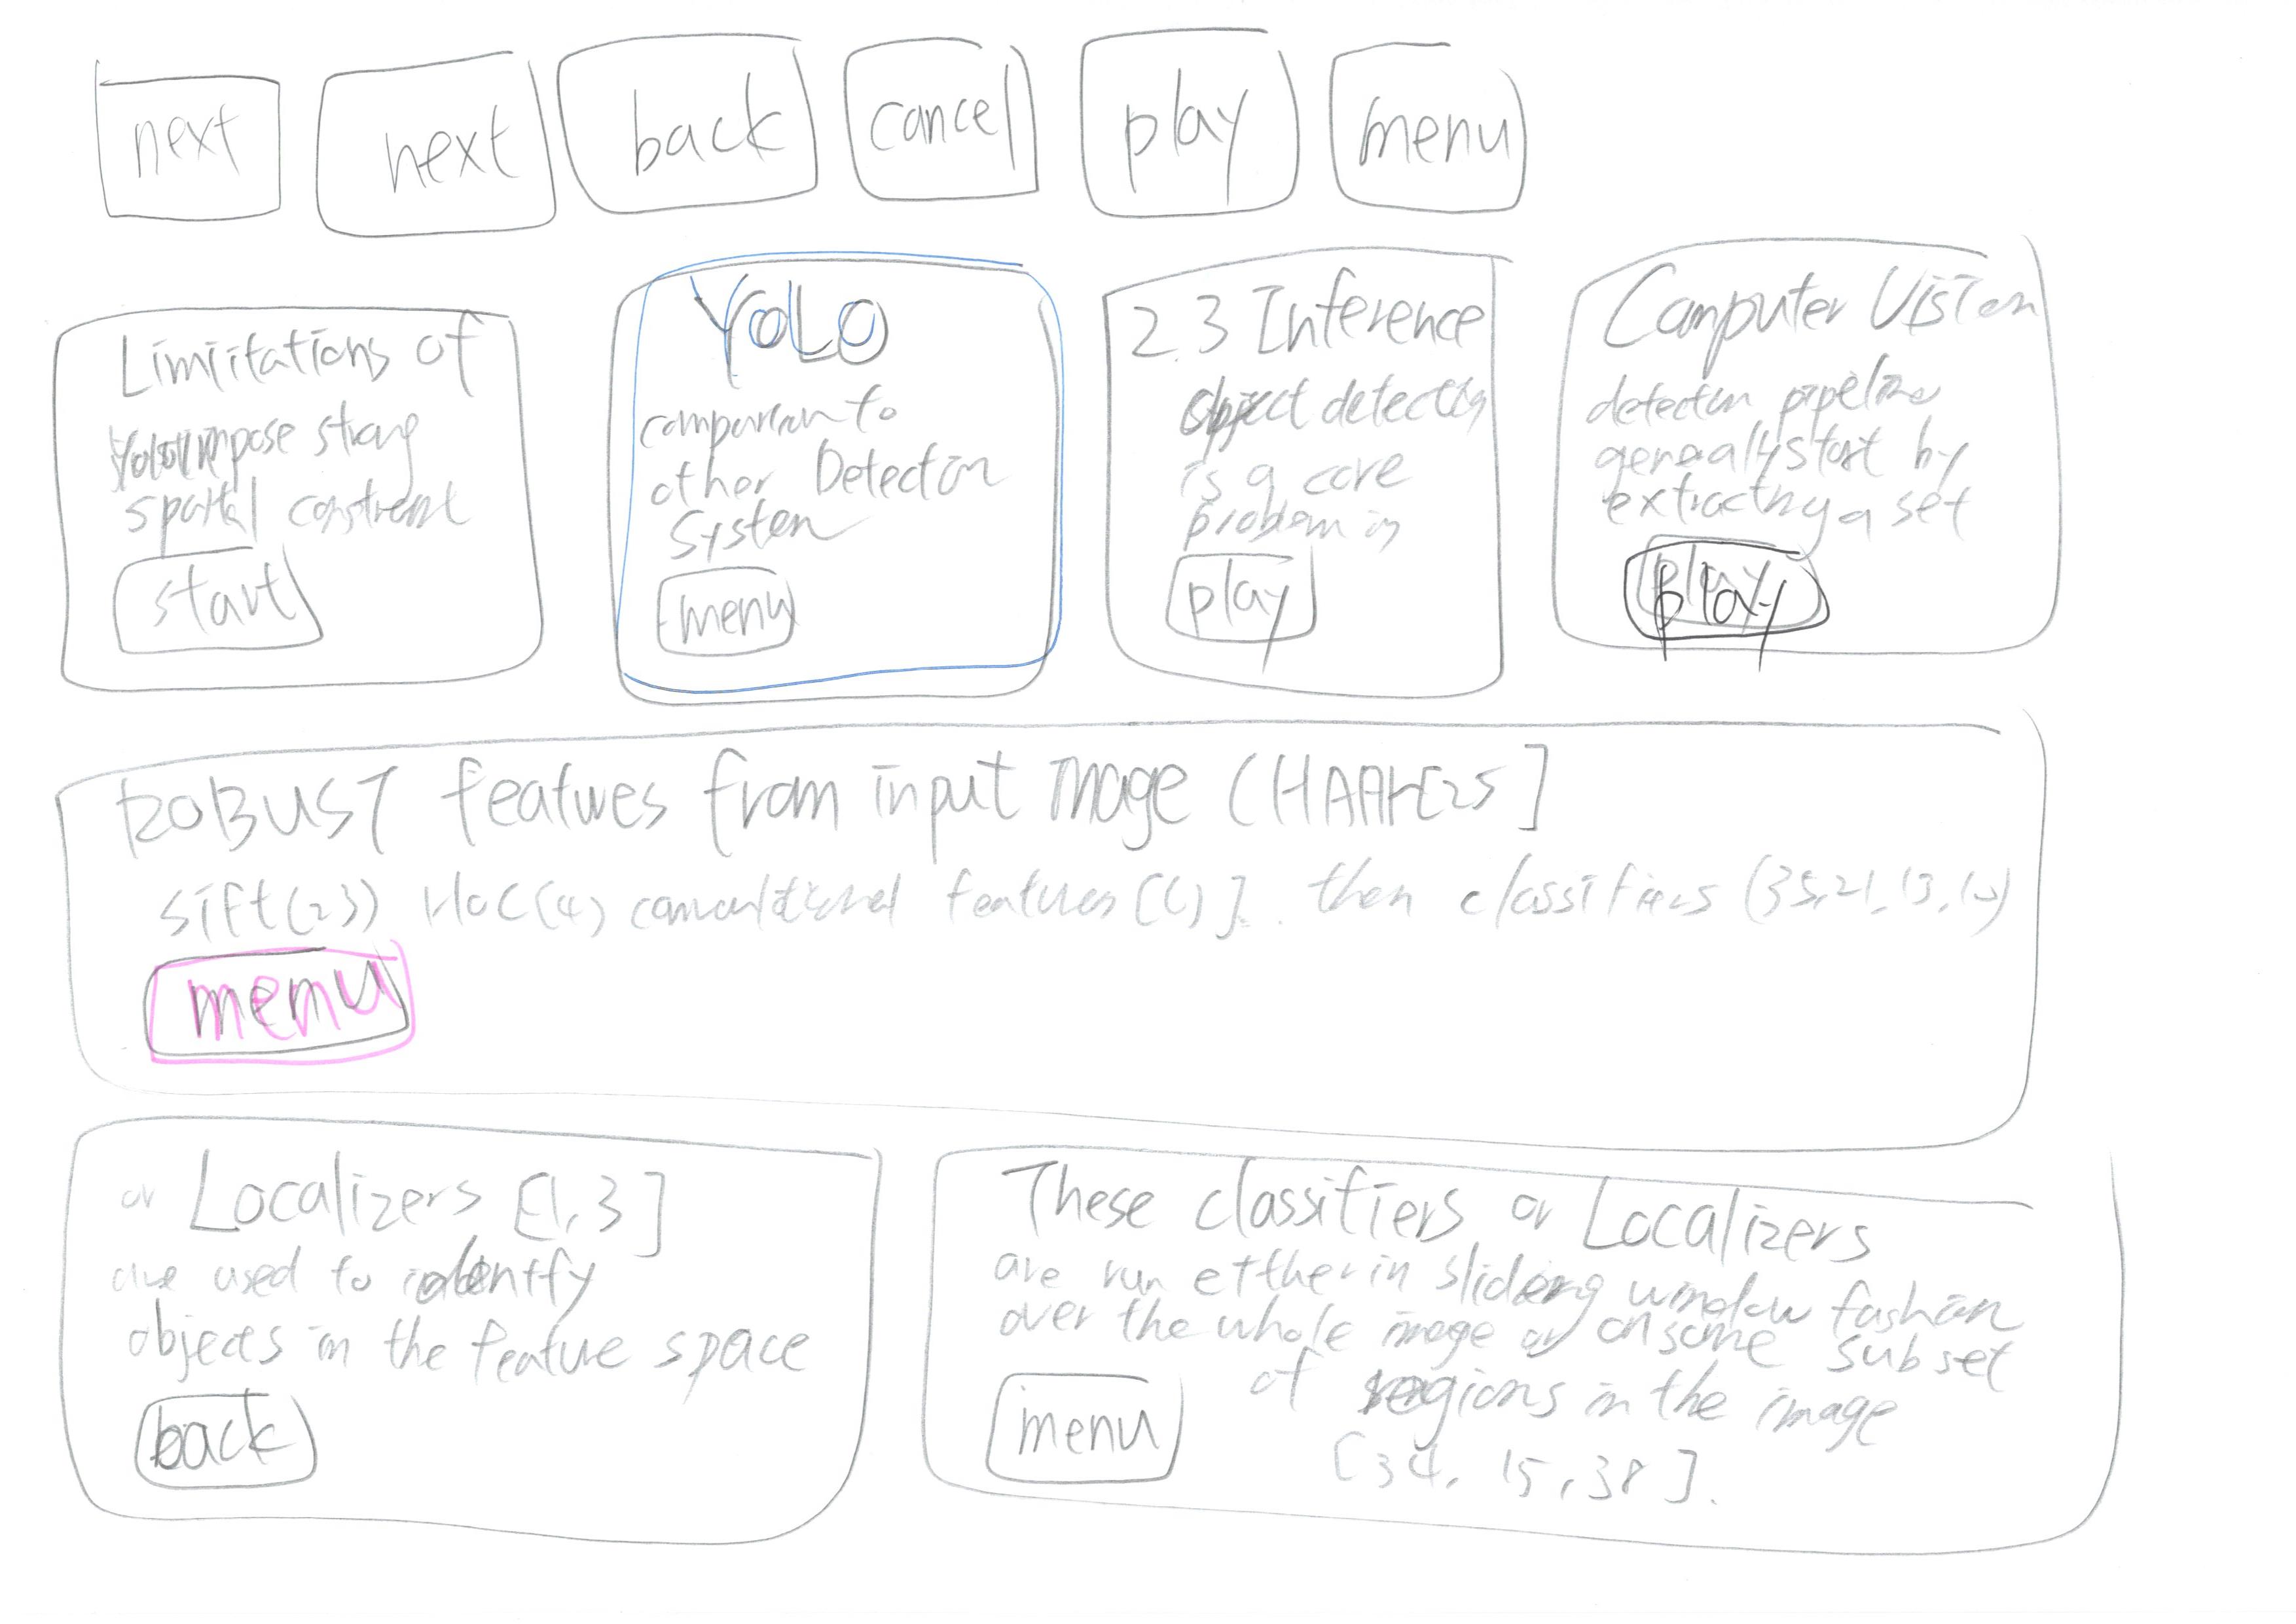 next next back cancel play menu
Limiitations of
Yolo impose strong
spatial constraint
start
YOLO
comparison to
other Detection
System
menu
2.3 Inference
object detection
is a core
problem in
play
Computer Vision
detection pipeline
generally start by
extracting a set
play
ROBUST features from input image (HAAR[25]
sift(23) HOC(4) features [6]]. then classifiers (35,21,13,10)
memu
or Localizers [1,3]
are used to identify
objects in the feature space
back
These classifiers or Localizers
are run either in sliding window fashion
over the whole image or on some subset
of regions in the image
[34, 15,38].
menu